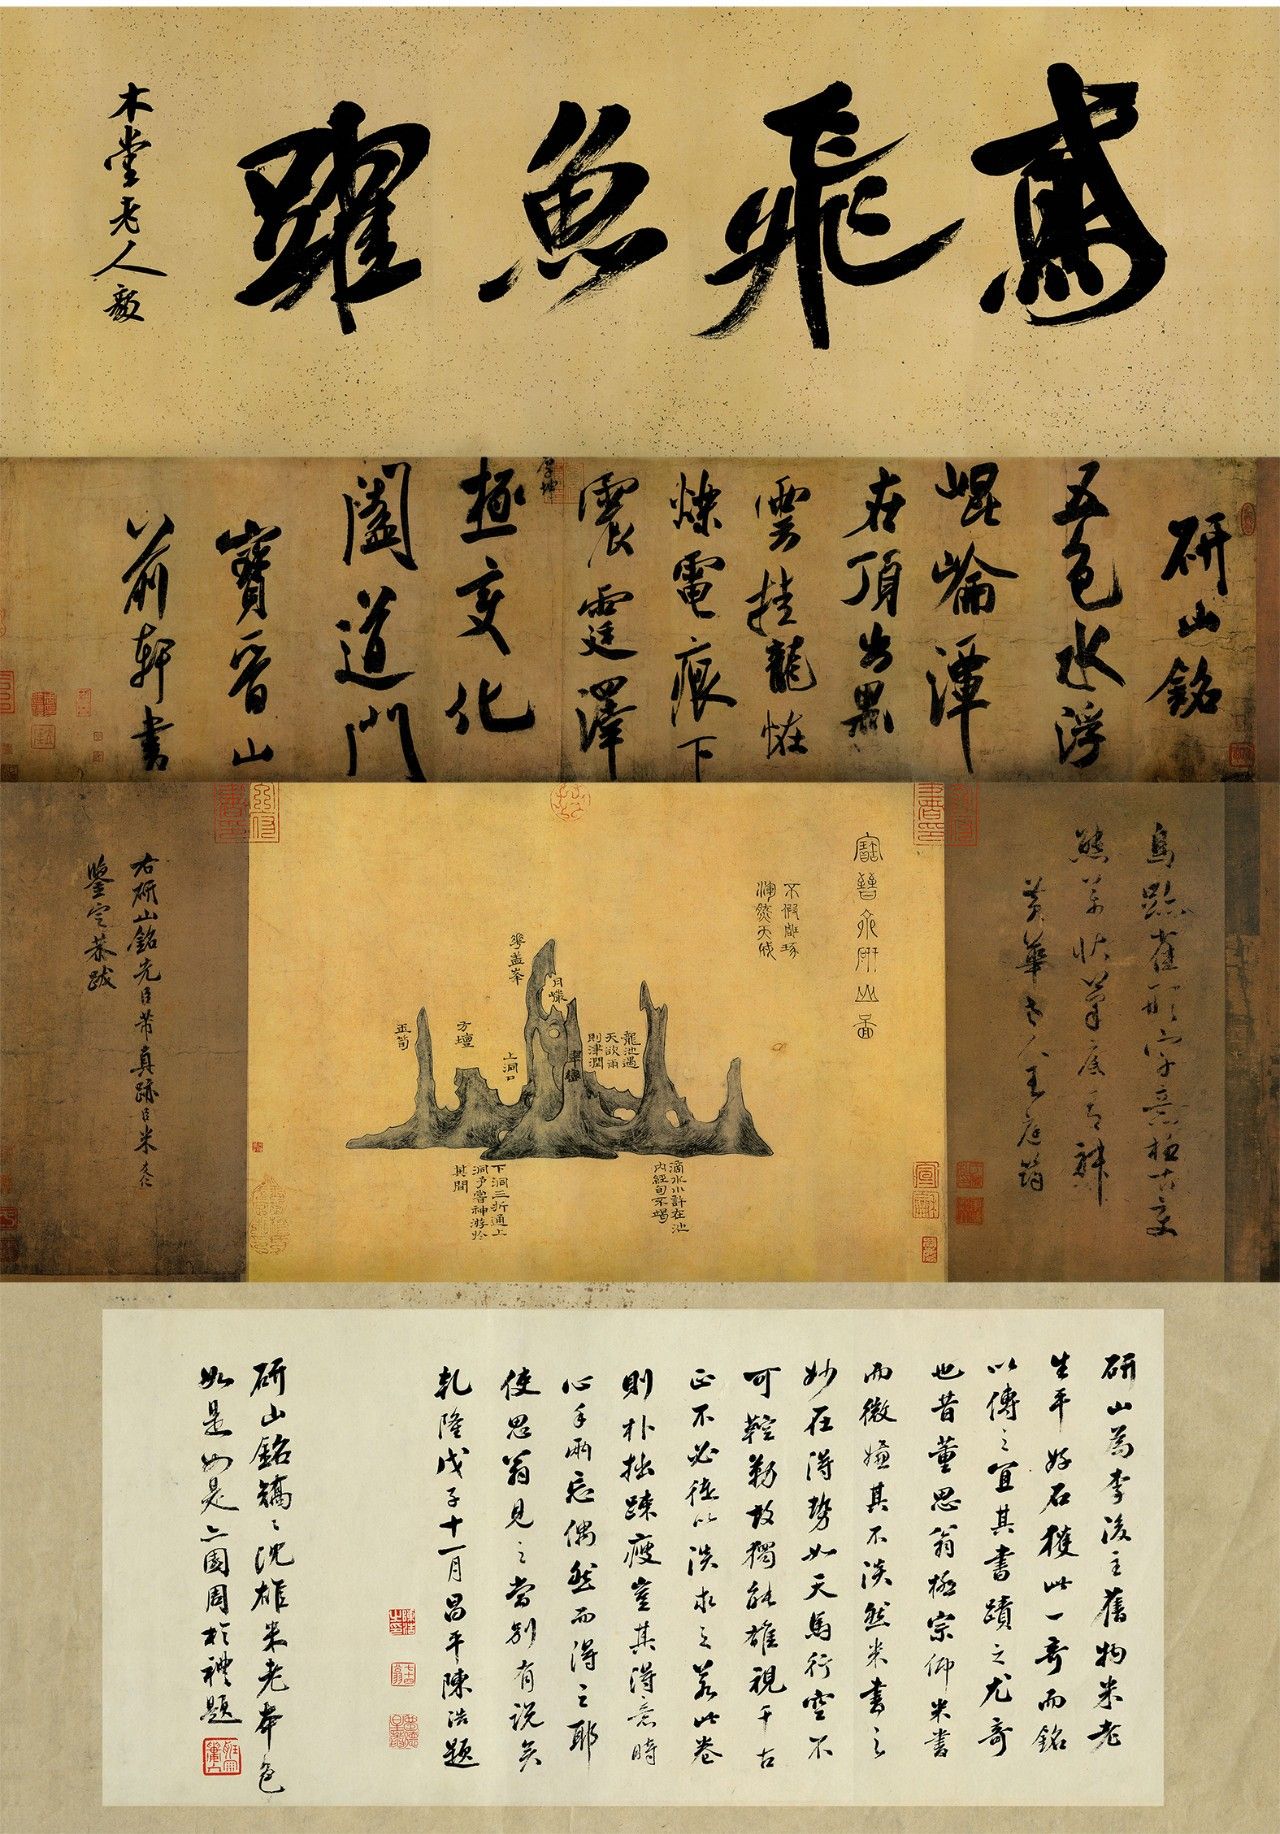 鳶飛魚躍
木堂老人毅
研山銘
五色水浮
崐崘潭
在頂出黑
雲挂龍怪
爍電痕下
震霆澤
極變化
闔道門
寶晉山
前軒書
鳥跡雀形字意極古變
態萬狀筆底有神
黃華老人王庭筠
寶晉齋研山圖
不假雕琢
渾然天成
龍池遇
天欲雨
則津潤
翠巒
月巖
華蓋峯
上洞口
方壇
玉筍
滴水小許在池
內經旬不竭
下洞三折通上
洞予嘗神游於
其間
右研山銘先臣芾真跡臣米友仁
鑒定恭跋
研山為李後主舊物米老
生平好石獲此一奇而銘
以傳之宜其書蹟之尤奇
也昔董思翁極宗仰米書
而微嫌其不淡然米書之
妙在得勢如天馬行空不
可鞚勒故獨能雄視千古
正不必徒以淡求之若此卷
則朴拙疎瘦豈其得意時
心手兩忘偶然而得之耶
使思翁見之當別有說矣
乾隆戊子十一月昌平陳浩題
研山銘矯〻沈雄米老本色
如是如是二國周於禮題